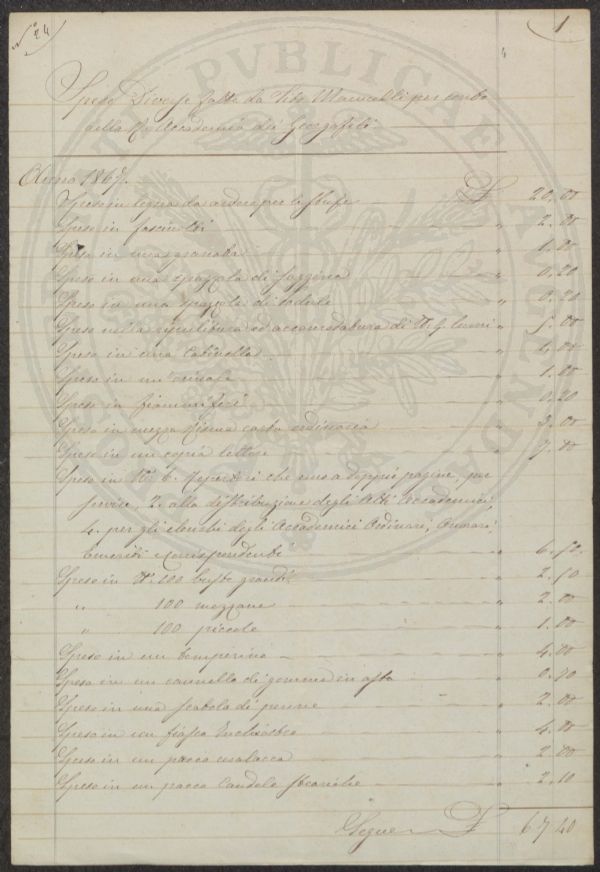 24
1
PUBLICAE
AUGENDAE
Spese Diverse fatte da Tito Marucelli per conto
della R. Accademia dei Georgofili
Anno 1867.
Spese in legna da ardere per le stufe £ 20,00
Spese in fascinotti " 2.00
Spesa in una granata " 1.00
Spese in una spazzola di saggina " 0,20
Spese in una spazzola di setole " 0.20
Spese nella ripulitura ed accomodatura di N. 9 lumi " 5.00
Spese in una Catinella " 4.00
Spese in un orinale " 1.00
Spese in fiammiferi " 0.20
Spese in mezza Risma carta ordinaria " 3.00
Spese in un copia lettere " 7.00
Spese in N. 6. Repertori che uno a doppie pagine, per
servire, 2. alla distribuzione degli Atti Accademici,
4. per gli elenchi degli Accademici Ordinari, Onorari
Emeriti e Corrispondenti " 6,50.
Spese in N. 100 buste grandi " 2.50
" 100 mezzane " 2.00
" 100 piccole " 1.00
Spese in un temperino " 4.00
Spesa in un cannello di gomma in asta " 0.70
Spese in una scatola di penne " 2.00
Spese in un fiasco Inchiostro " 4.00
Spese in un pacco ceralacca " 2.00
Spese in un pacco Candele steariche " 2.10
Segue £ 67.40